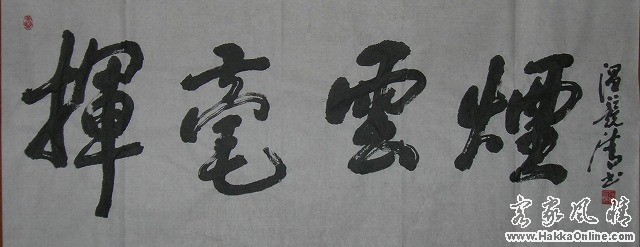 揮毫雲煙
客家風情
www.HakkaOnline.com